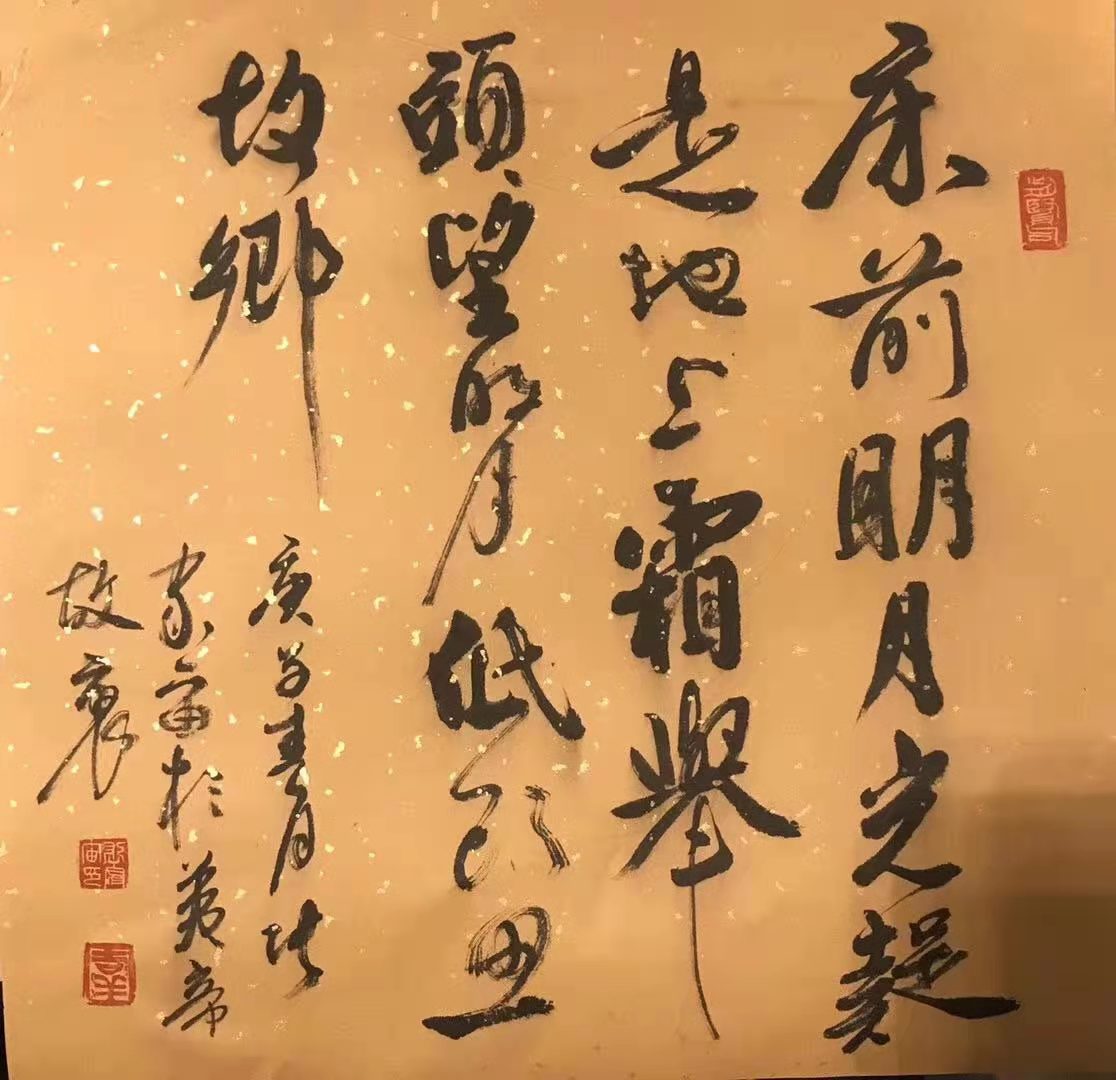 床前明月光疑
是地上霜舉
頭望明月低頭思
故鄉
庚子春月沐
家富於黃帝
故裏